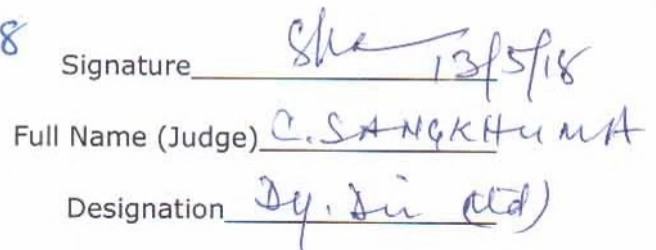 8
Signature 13/5/18
Full Name (Judge) C. SANGKHUMA
Designation Dy. Dir (Rtd)